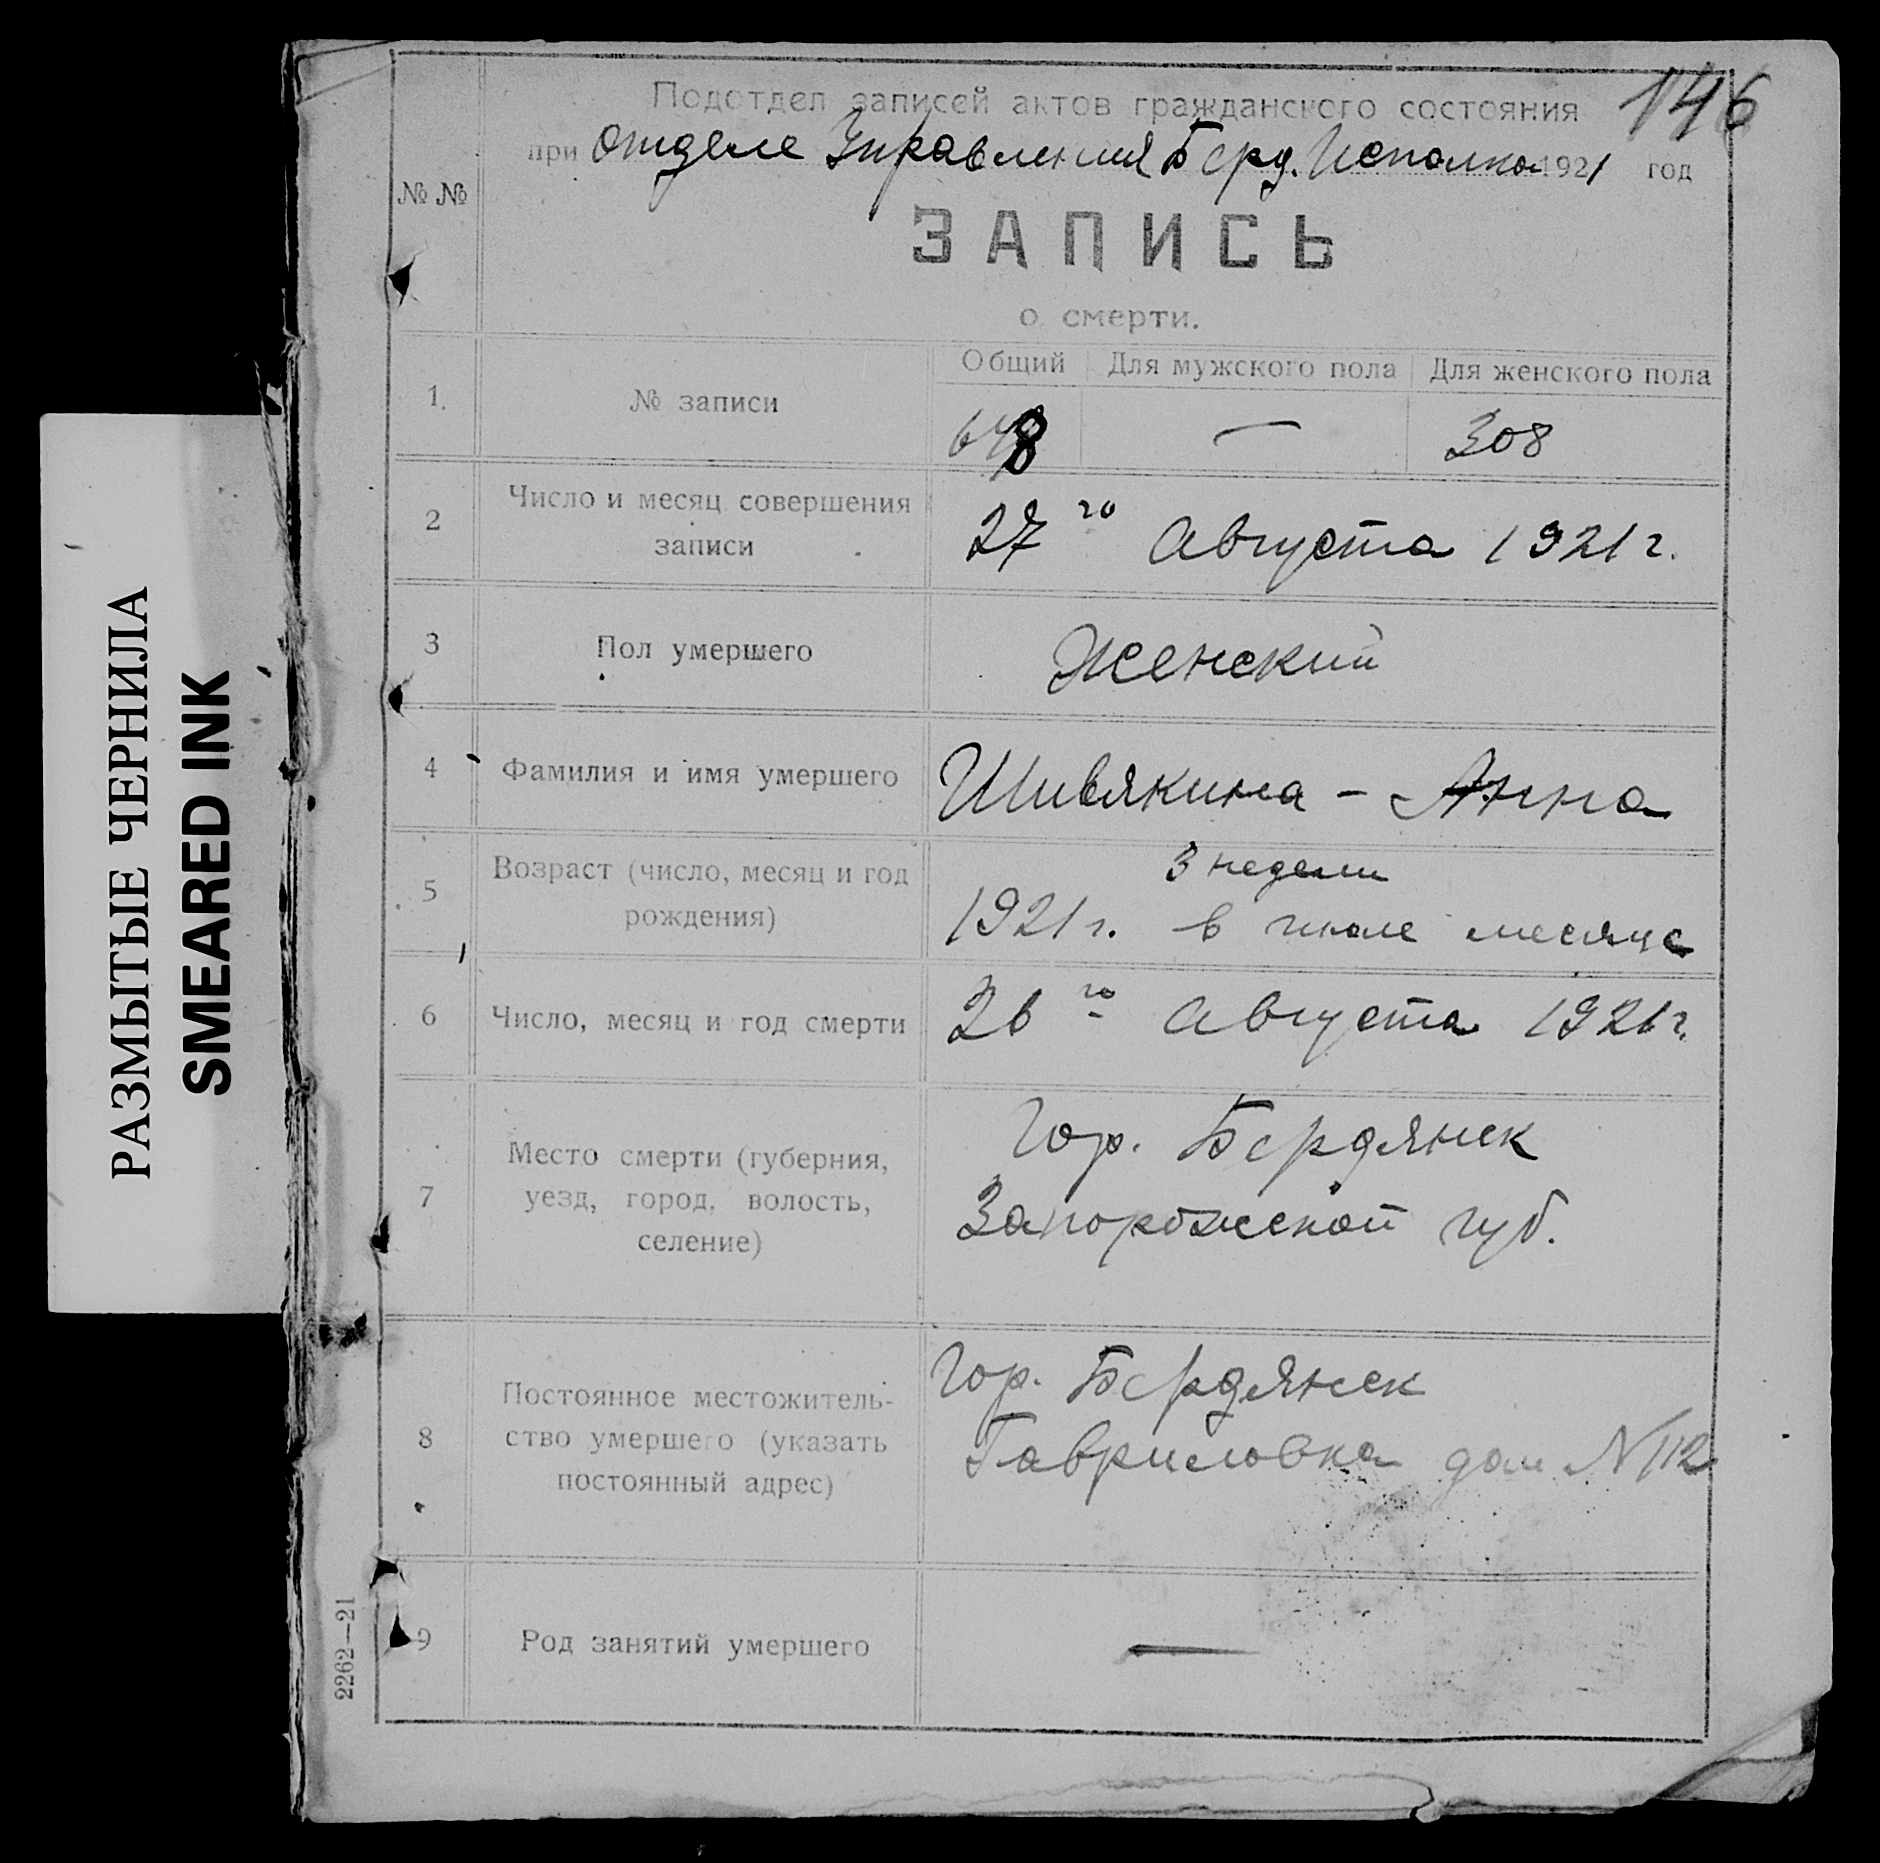 РАЗМЫТЫЕ ЧЕРНИЛА
SMEARED INK
146
Подотдел записей актов гражданского состояния
при Отделе Управления Берд. Исполком 1921 год
№ №
ЗАПИСЬ
о смерти.
Общий Для мужского пола Для женского пола
1. № записи
648 — 308
2 Число и месяц совершения
записи
27го Августа 1921 г.
3 Пол умершего Женский
4 Фамилия и имя умершего Шивякина - Анна
5 Возраст (число, месяц и год
рождения)
3 недели
1921 г. в июле месяце
6 Число, месяц и год смерти 26го Августа 1921 г.
7 Место смерти (губерния,
уезд, город, волость,
селение)
Гор. Бердянск
Запорожской губ.
8 Постоянное местожитель-
ство умершего (указать
постоянный адрес)
Гор. Бердянск
Гавриловка дом № 112
9 Род занятий умершего —
2262—21